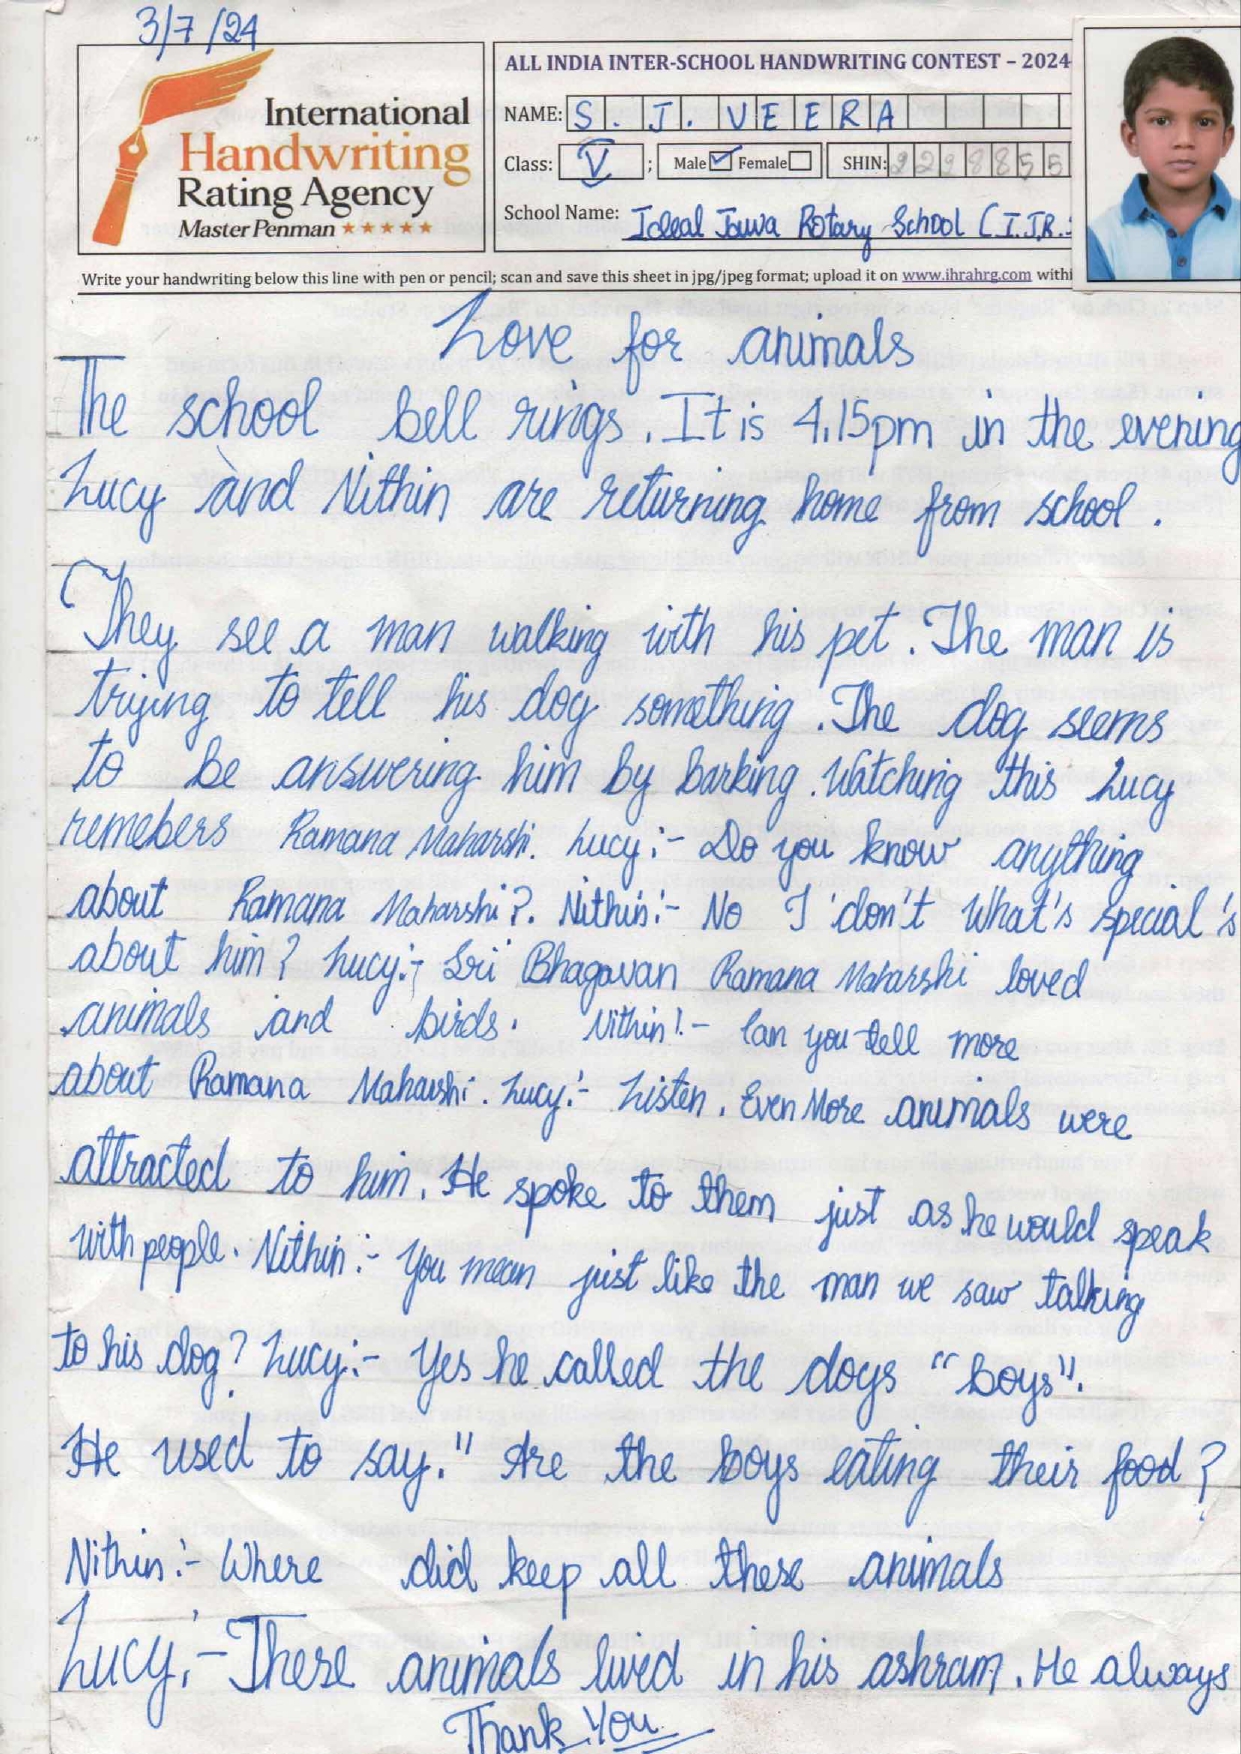 3/7/24
International
Handwriting
Rating Agency
Master Penman ★★★★★
ALL INDIA INTER-SCHOOL HANDWRITING CONTEST – 2024
NAME: S. J. VEERA
Class: V ; Male ☑ Female ☐ SHIN: 2298855
School Name: Ideal Jawa Rotary School (I.J.R.
Write your handwriting below this line with pen or pencil; scan and save this sheet in jpg/jpeg format; upload it on www.ihrahrg.com withi
Love for animals
The school bell rings. It is 4.15pm in the evening
Lucy and Nithin are returning home from school.
They see a man walking with his pet. The man is
trying to tell his dog something. The dog seems
to be answering him by barking. Watching this Lucy
remebers Ramana Maharshi. Lucy:- Do you know anything
about Ramana Maharshi?. Nithin:- No I don't What's special's
about him? Lucy:- Sri Bhagavan Ramana Maharshi loved
animals and birds. Nithin:- Can you tell more
about Ramana Maharshi. Lucy:- Listen. Even More animals were
attracted to him. He spoke to them just as he would speak
with people. Nithin:- You mean just like the man we saw talking
to his dog? Lucy:- Yes he called the dogs "boys".
He used to say." Are the boys eating their food?
Nithin:- Where did keep all these animals
Lucy:- These animals lived in his ashram. He always
Thank You